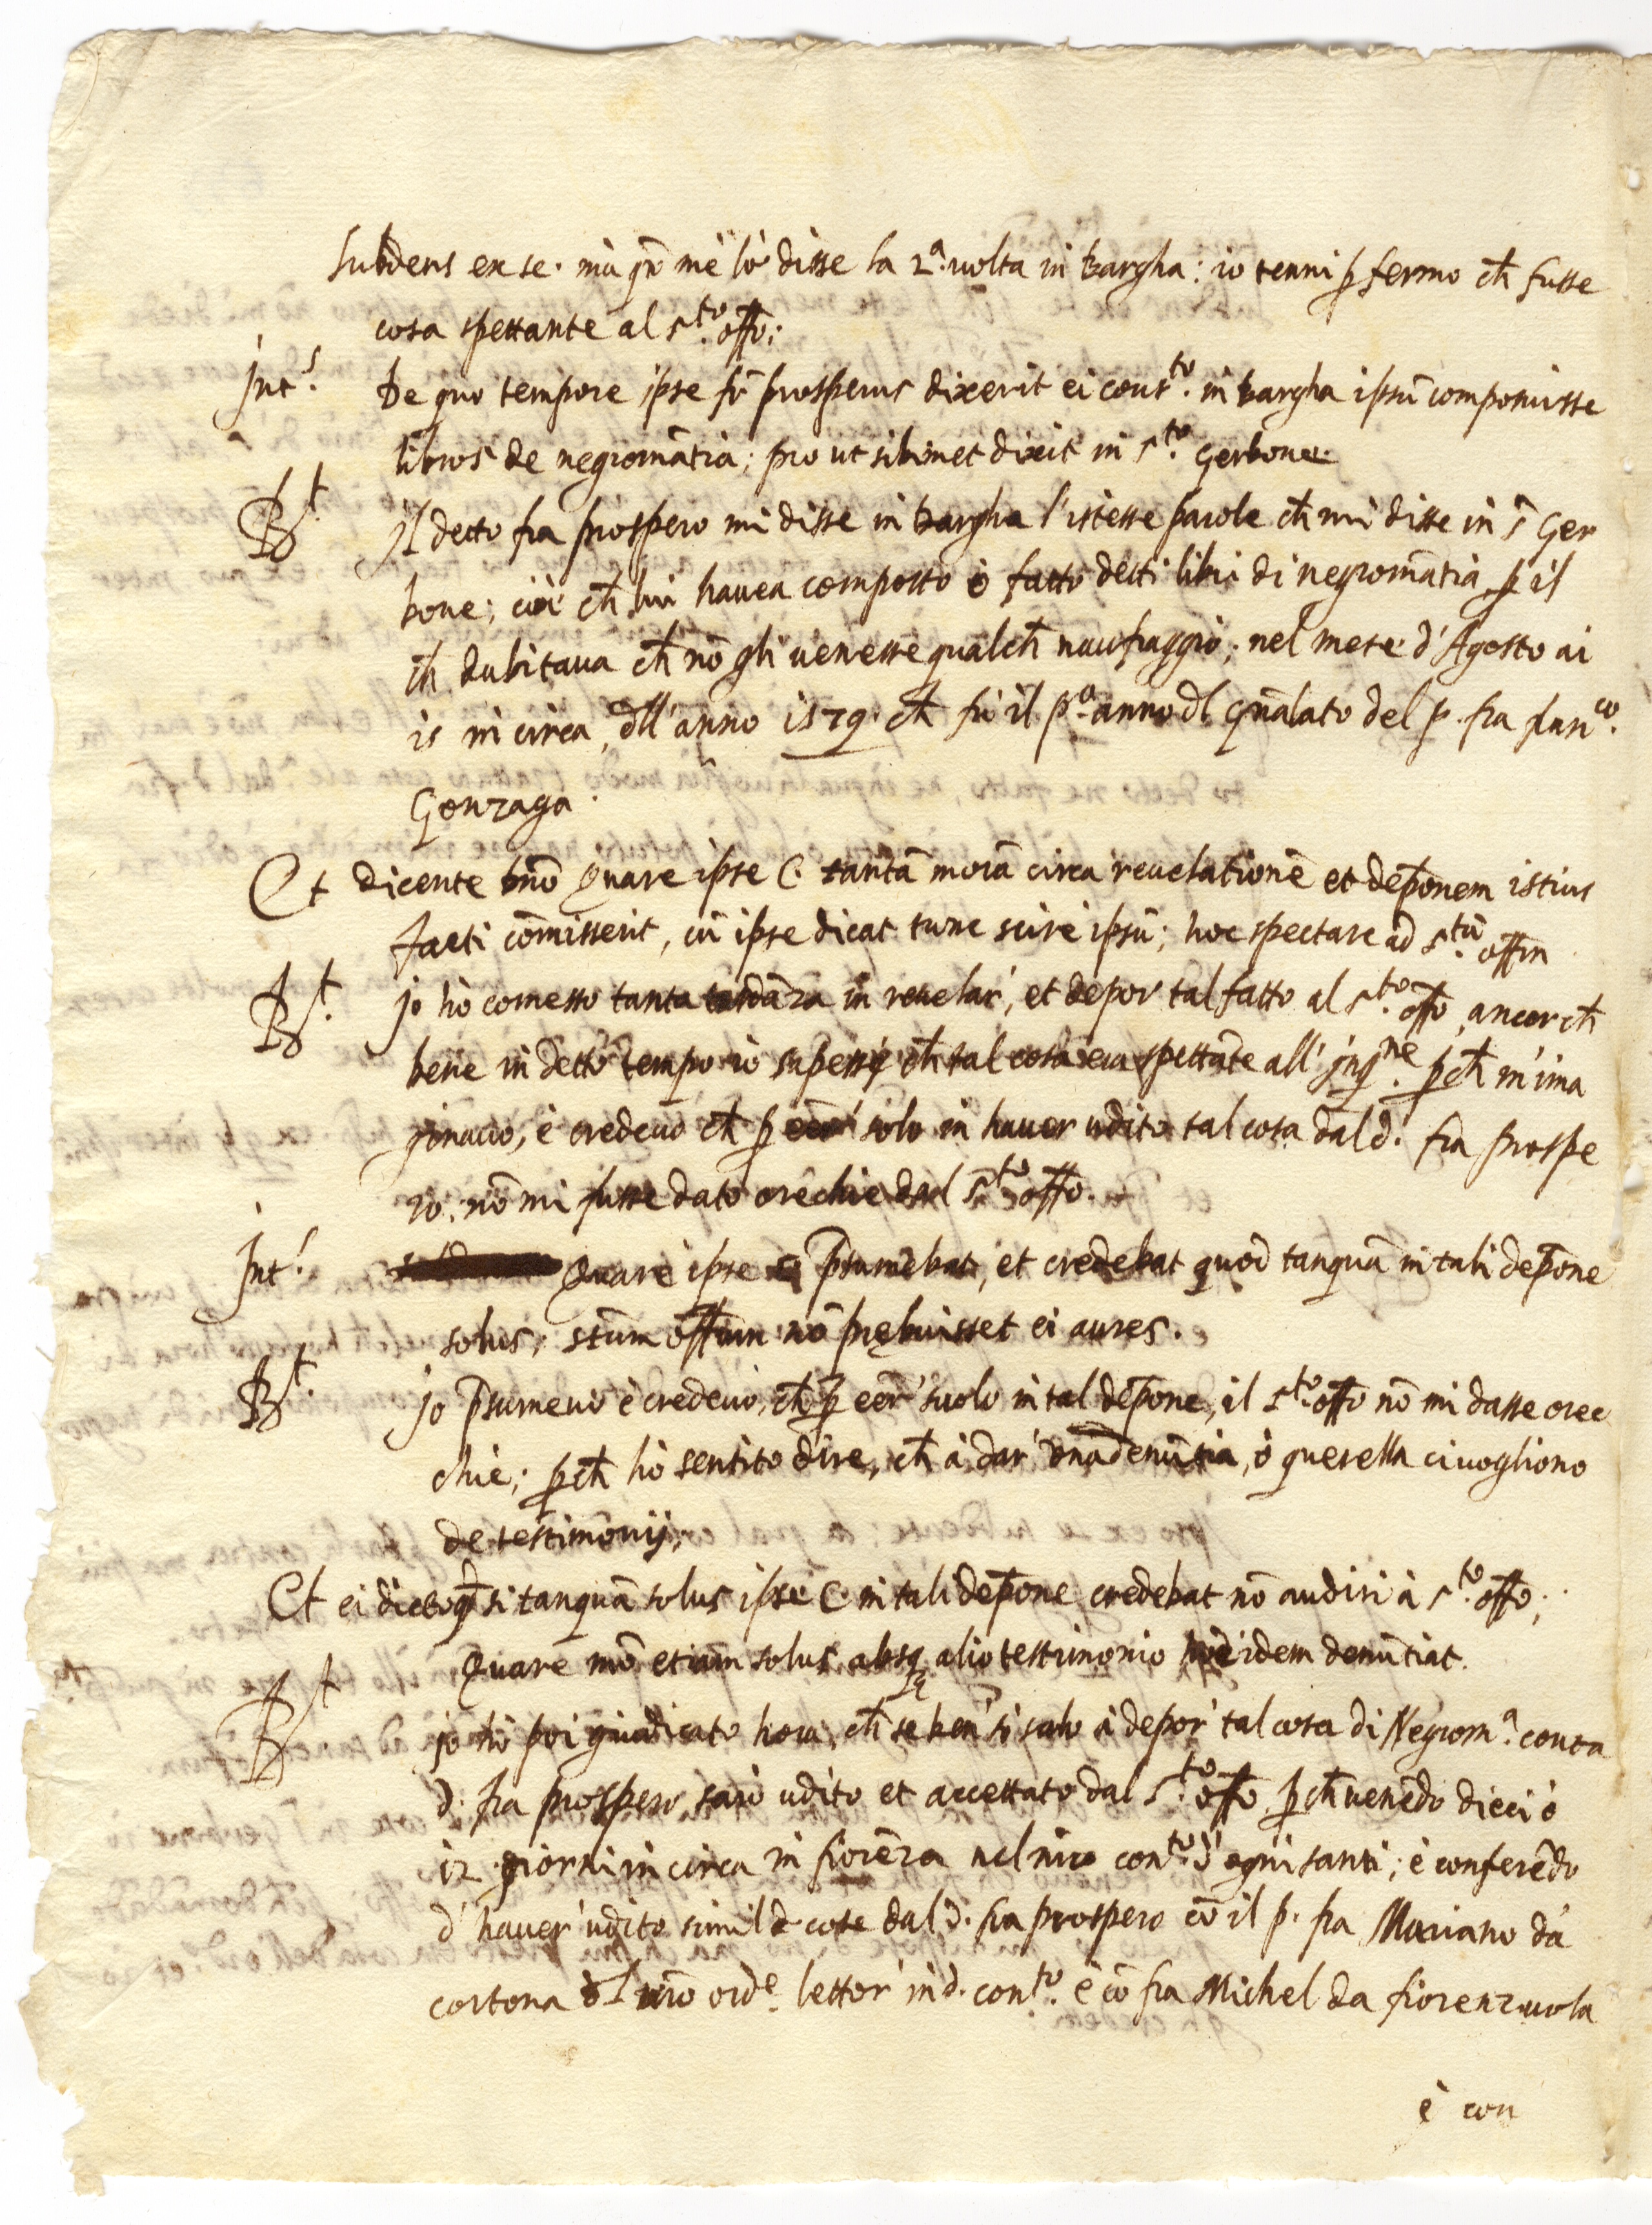 Subdens ex se. mà qn̄ me lò disse la 2.ª uolta in bargha: io tenni ꝑ fermo ch̄ fusse
cosa spettante al s.to offo:
Int.s De quo tempore ipse fr̄ prosperus dixerit ei cons.to in bargha ipsū composuisse
libros de negromātia; pro ut sibimet dixit in s.to Gerbone.
R.t Il detto fra prospero mi disse in bargha l'istesse parole ch̄ mi disse in s̄ Ger
bone; cioè ch̄ lui hauea composto ò fatto detti libri di negromātia ꝑ il
ch̄ dubitaua ch̄ nō gli uenesse qualch̄ naufraggio; nel mese d'Agosto ai
15 in circa, dll'anno 1579. ch̄ fù il p.º anno dl gn̄alato del p. fra fran.co
Gonzaga.
Et dicente Dn̄o Quare ipse C. tantā morā circa reuelationē et depōnem istius
facti cōmisserit, cū ipse dicat tunc scire ipsū; hoc spectare ad s.tū offm
R.t Io hò comesso tanta tardāza in reuelar', et depor' tal fatto al s.to offo, ancor ch̄
bene in detto tempo io sapessi ch̄ tal cosa era spettāte all' Inq.ne ꝑch̄ m'ima
ginauo, è credeuo ch̄ ꝑ eēr' solo in hauer udito tal cosa dal d. fra prospe
ro, nō mi fusse dato orechie dal s.to offo.
Int.s Quare ipse C. p̄sumebat, et credebat quod tanquā in tali depōne
solus; stūm offum nō prębuisset ei aures.
R.t Io p̄sumeuo è credeuo, ch̄ ꝑ eēr' suolo in tal depōne, il s.to offo nō mi dasse orec
chie; ꝑch̄ hò sentito dire, ch̄ à dar' una denūtia, ò querella ci uogliono
de testimonij.
Et ei dicto qd̄ si tanquā solus ipse C. in tali depōne credebat nō audiri à s.to offo;
Quare mō etiam solus absq alio testimonio idem denūtiat.
R.t Io hò poi giudicato hora, ch̄ se ben' sō solo à depor' tal cosa di Negrom.ª contra
d. fra prospero, sarò udito et accettato dal s.to offo ꝑch̄ uenēdo dieci ò
12 giorni in circa in fiorēza nel nr̄o con.to d'ogni santi; è conferēdo
d'hauer' udito simil d cose dal d. fra prospero cō il p. fra Mariano da
cortona dl nr̄o ord.e lettor' in d. con.to è cō fra Michel da fiorenzuola
è con